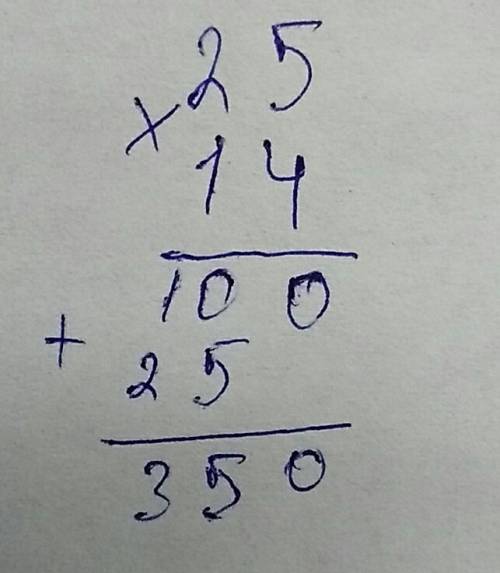 25
×
14
100
+
25
350